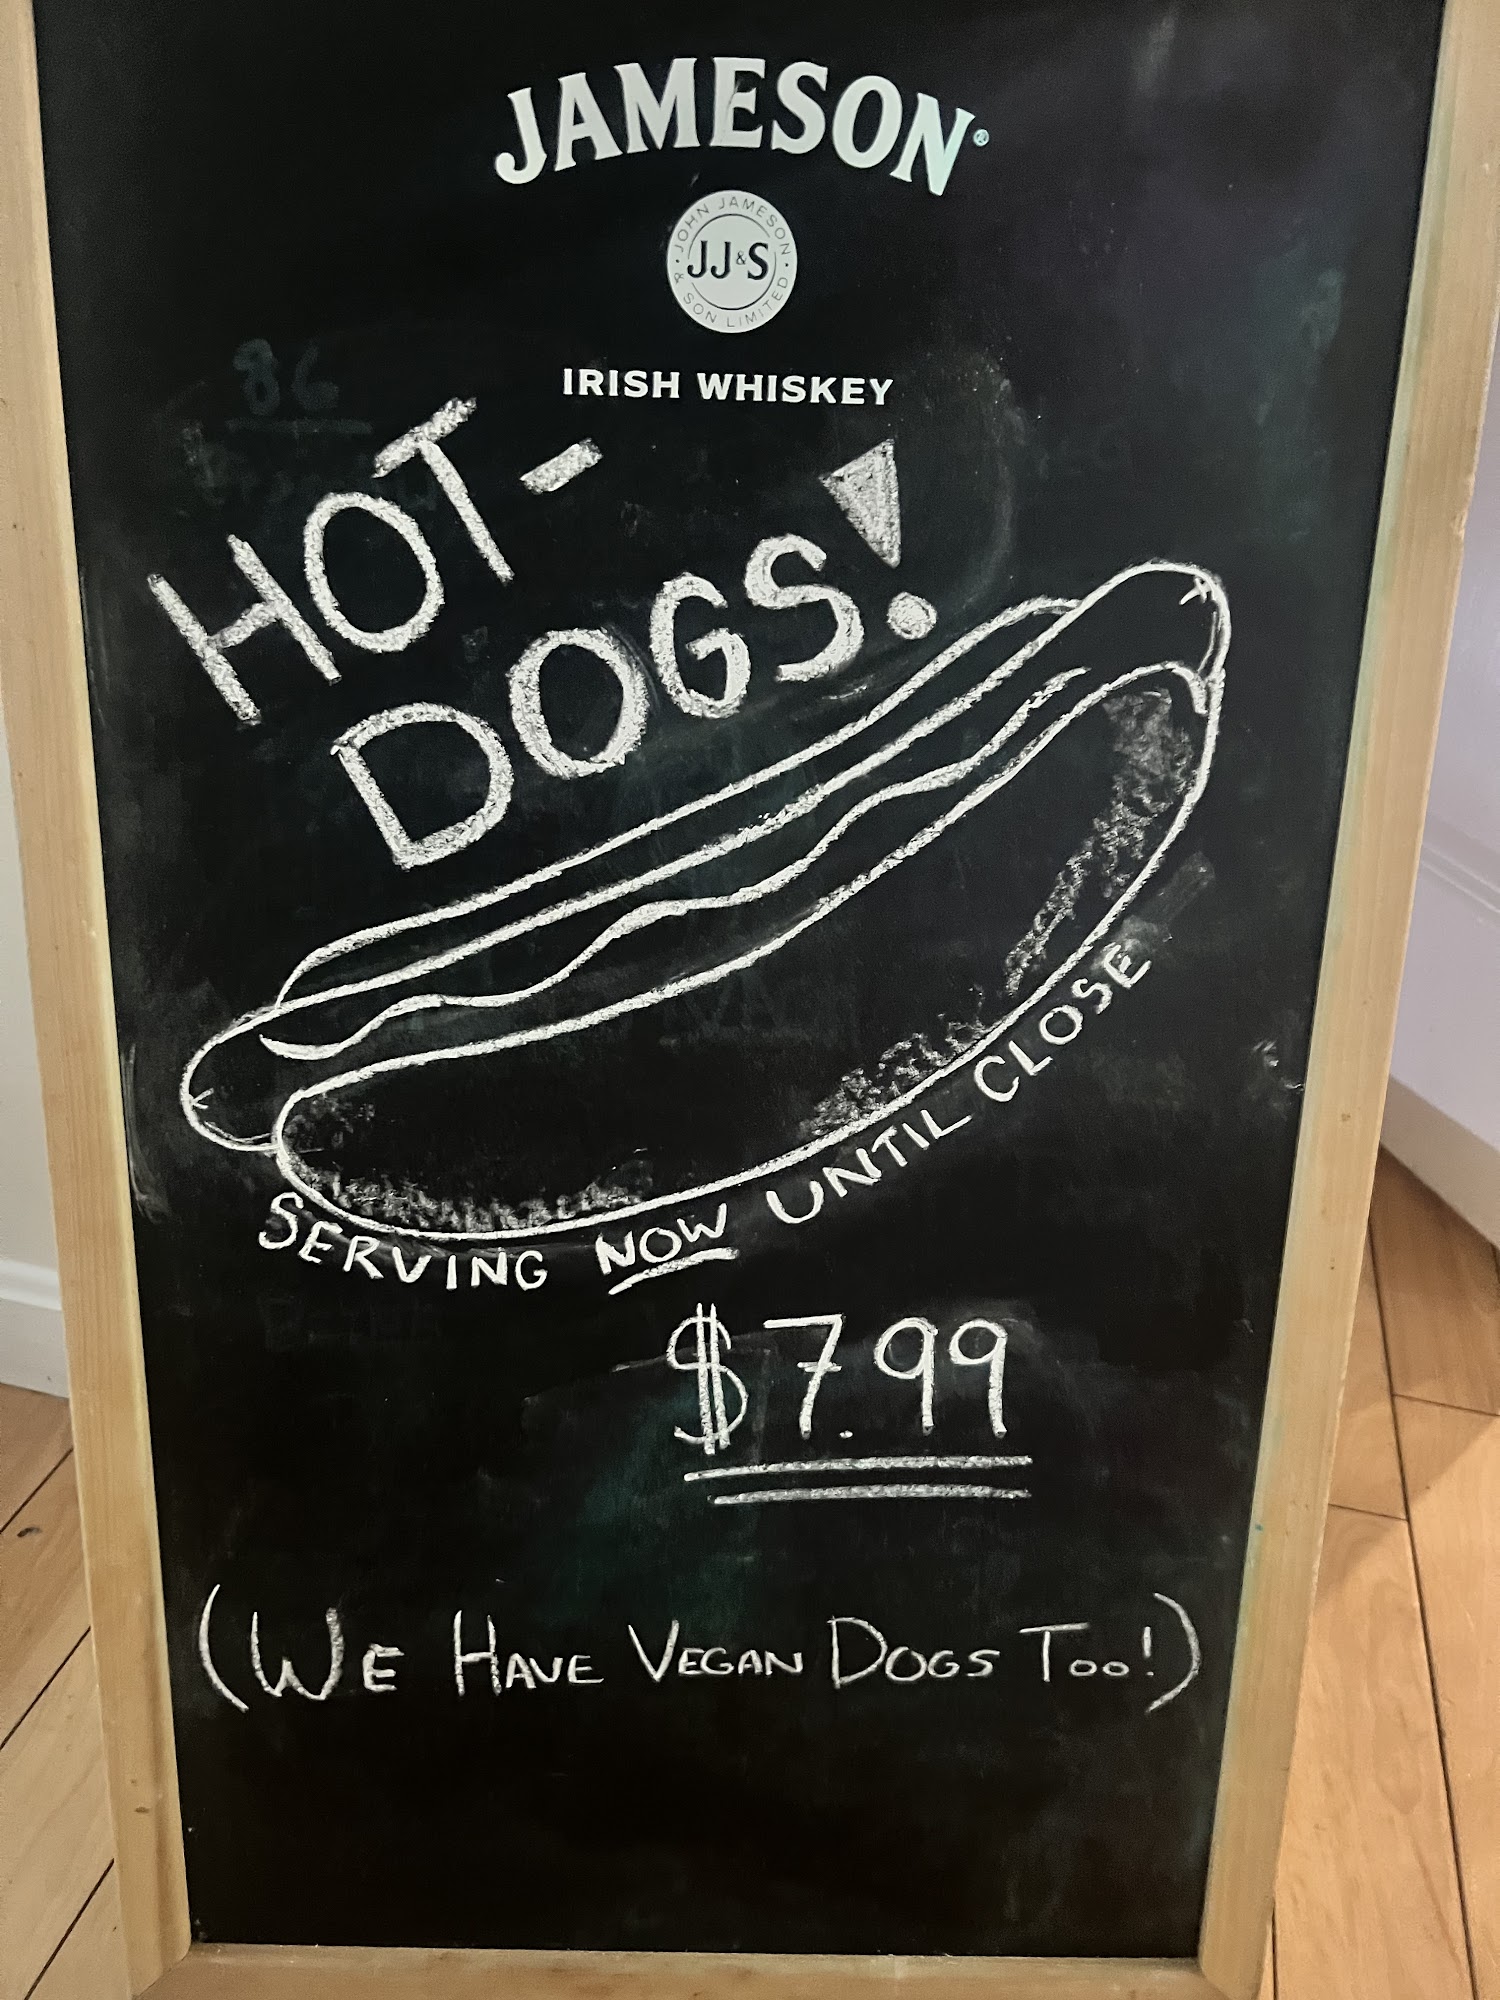 JAMESON®
JOHN JAMESON & SON LIMITED
JJ&S
IRISH WHISKEY
86
HOT-
DOGS!
SERVING NOW UNTIL CLOSE
$7.99
(WE HAVE VEGAN DOGS TOO!)